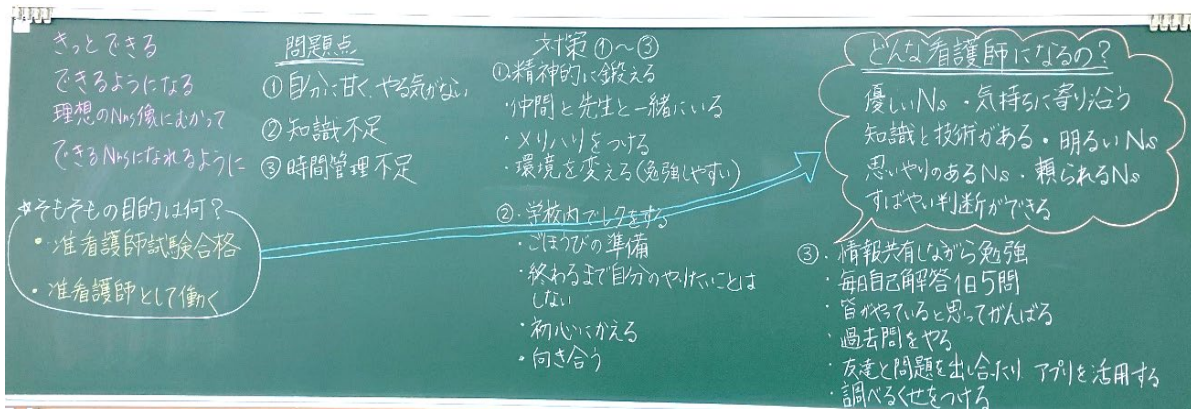 きっとできる
できるようになる
理想のNrs像にむかって
できるNrsになれるように
☆そもそもの目的は何?
・准看護師試験合格
・准看護師として働く
問題点
①自分に甘く、やる気がない
②知識不足
③時間管理不足
対策①～③
①.精神的に鍛える
・仲間と先生と一緒にいる
・メリハリをつける
・環境を変える(勉強しやすい)
②.学校内でレクをする
・ごほうびの準備
・終わるまで自分のやりたいことは
しない
・初心にかえる
・向き合う
どんな看護師になるの?
優しいNs・気持ちに寄り沿う
知識と技術がある・明るいNs
思いやりのあるNs・頼られるNs
すばやい判断ができる
③.情報共有しながら勉強
・毎日自己解答1日5問
・皆がやっていると思ってがんばる
・過去問をやる
・友達と問題を出し合ったり アプリを活用する
・調べるくせをつける